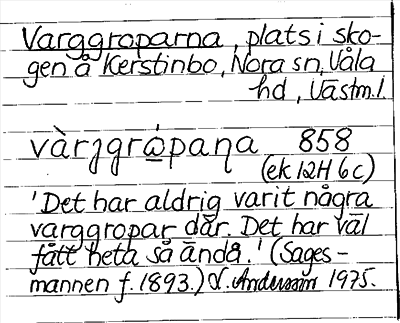 Varggroparna, plats i sko-
gen å Kerstinbo, Nora sn, Våla
hd, Västm.l.
vàrjgrɷ́paṇa 858
(ek 12H 6c)
'Det har aldrig varit några
varggropar där. Det har väl
fått heta så ändå.' (Sages-
mannen f. 1893.) V. Andersson 1975.